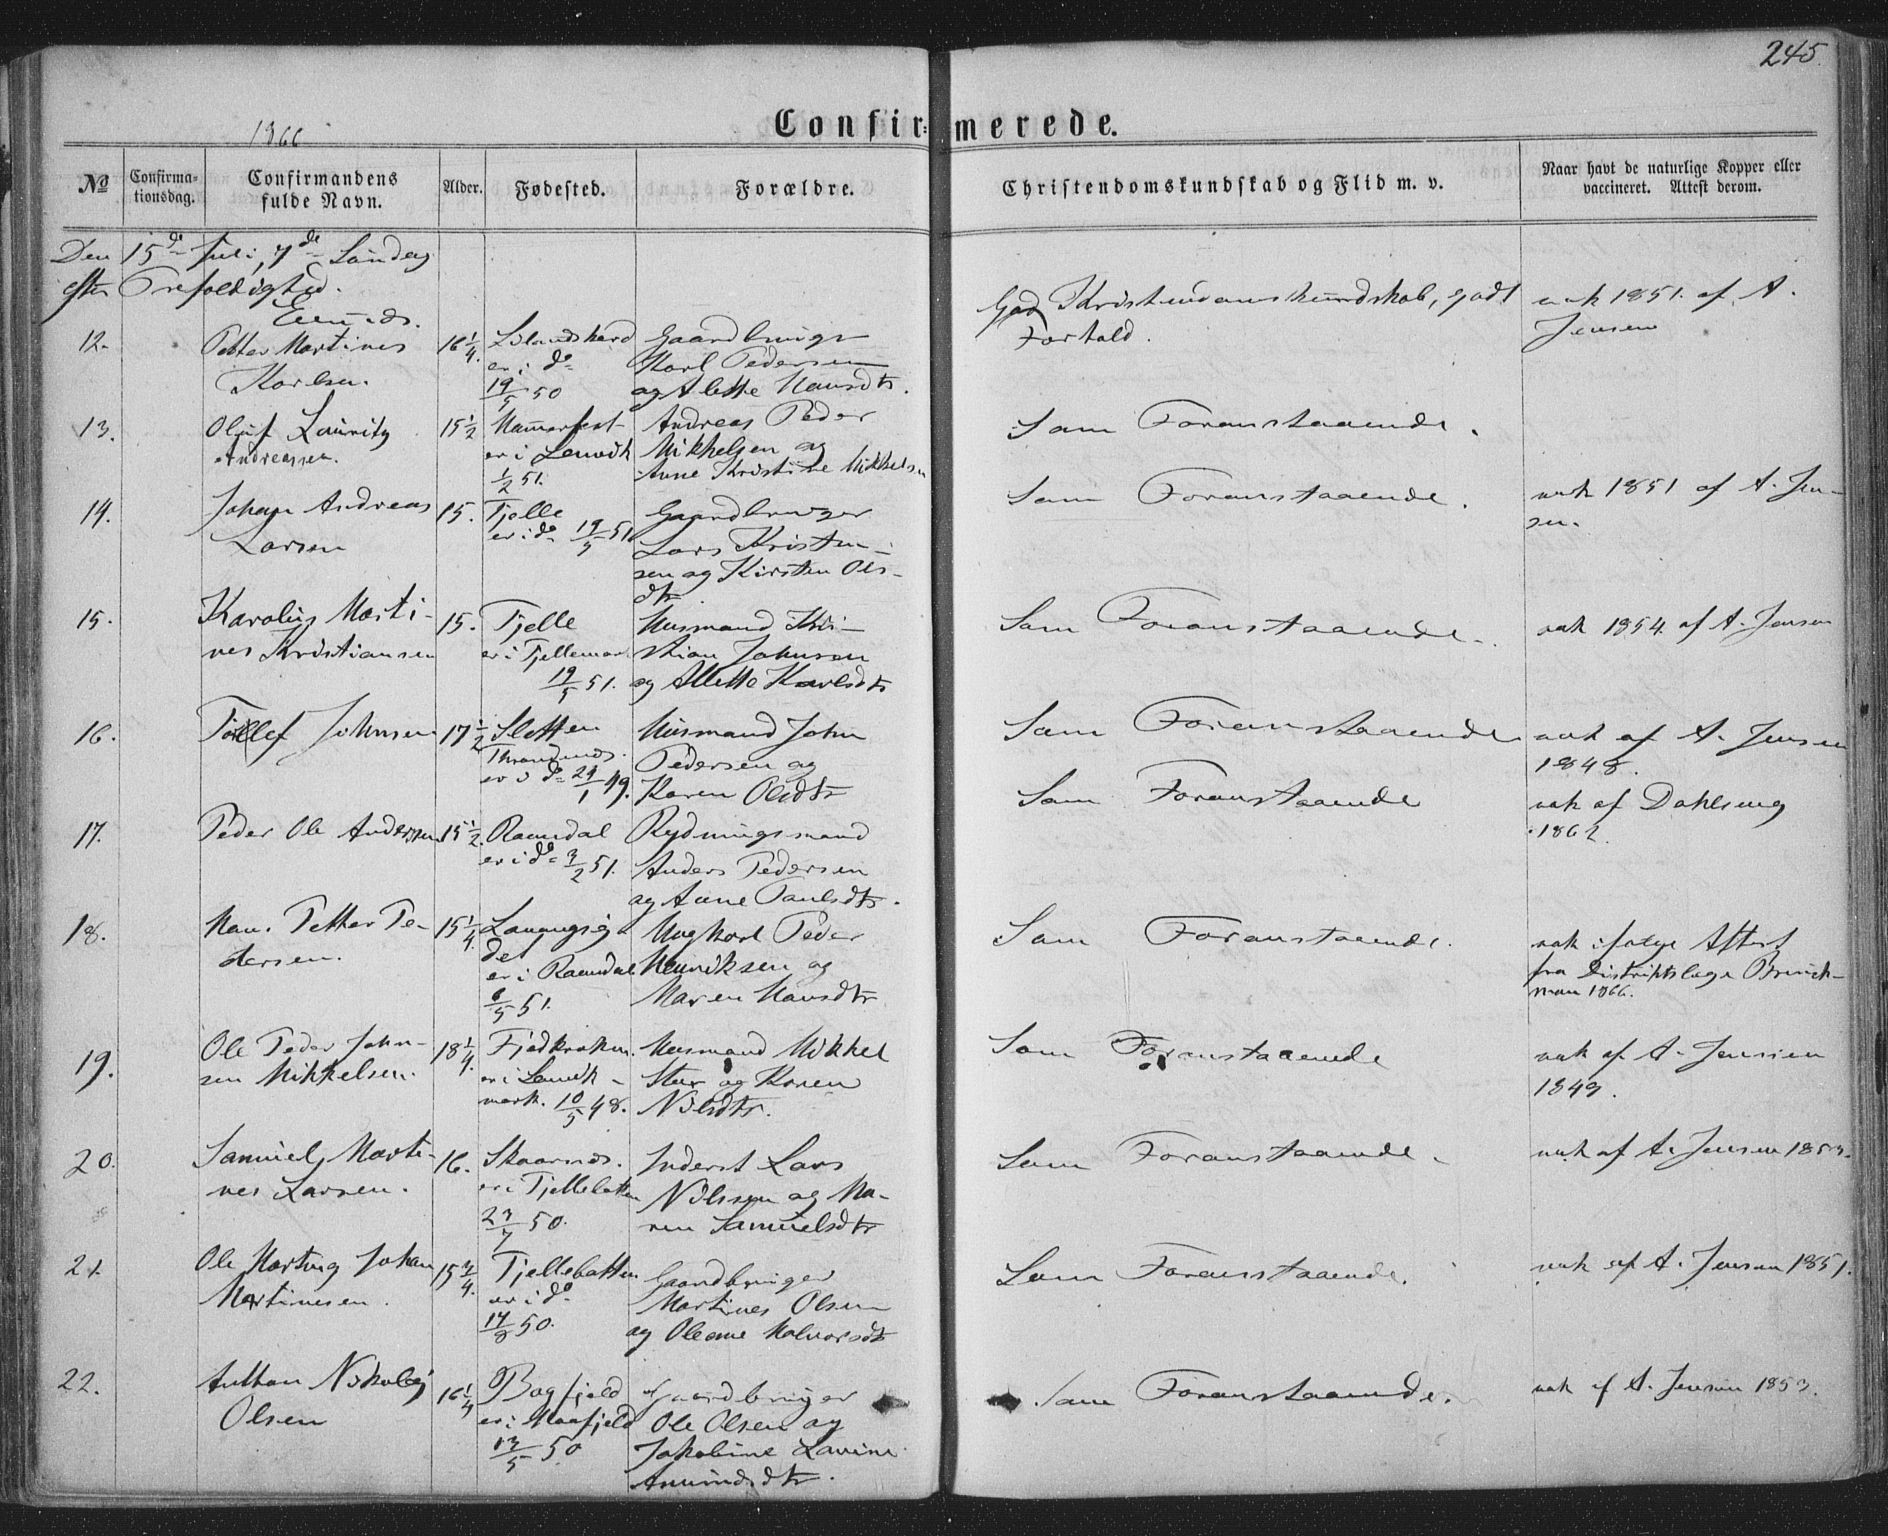 245.
Confir= merede.
1866
No
Confirma=
tionsdag.
Confirmandens
fulde Navn.
Alder.
Fødested.
Forældre.
Christendomskundskab og Flid m. v.
Naar havt de naturlige Kopper eller
vaccineret. Attest derom.
Den 15de Juli, 7de Søndag
efter Trefoldighed.
12.
Petter Martines
Karlsen.
16 1/4.
er i do
19/5 50
Gaardbruger
Karl Pedersen
og Alette Hansdtr.
God Kristendomskundskab, godt
Forhold.
vak 1851. af A.
Jensen
13.
Oluf Lauritz
Andreassen.
15 1/2
Hammerfest
er i Lenvik
1/2 51.
Andreas Peder
Mikkelsen og
Anne Kristine Mikkelsen
Som Foranstaaende.
14.
Johan Andreas
Larsen
15.
Fjelle
er i do 19/5 51
Gaardbruger
Lars Kristen-
sen og Kirsten Ols-
dtr
Som Foranstaaende.
vak 1851 af A. Jen-
sen.
15.
Karolius Marti-
nes Kristiansen
15.
Fjelle
er i Fjellemark
19/5 51.
Husmand Kri-
stian Johnsen
og Allette Karlsdtr
Som Foranstaaende.
vak 1854. af A. Jensen
16.
Tollef Johnsen
17 1/2
Sletten
er i do 24/1 49.
Husmand John
Pedersen og
Karen Olsdtr
Som Foranstaaende
vak af A. Jensen
1848.
17.
Peder Ole Anderssen
15 1/2.
Raundal
er i do 3/2 51.
Rydningsmand
Anders Pedersen
og Anne Paulsdtr.
Som Foranstaaende
vak af Dahlseng
1862.
18.
Hans Petter Pe-
dersen.
15 1/4.
det
er i Raundal
6/5 51.
Ungkarl Peder
Henriksen og
Maren Hansdtr
Som Foranstaaende.
vak ifølge Attest
fra Distriktslæge Brinch-
man 1866.
19.
Ole Peder John-
sen Mikkelsen.
18 1/4.
er i Lenvik-
mark. 10/5 48.
Husmand Mikkel
og Karen
Nilsdtr.
Som Foranstaaende
vak af A. Jensen
1849.
20.
Samuel Marti-
nes Larsen.
16.
Skaarnes.
er i Fjellebotten
23/7 50.
Inderst Lars
Nilssen og Ma-
ren Samuelsdtr
Som Foranstaaende.
vak af A. Jensen 1853.
21.
Ole Hartvig Johan
Martinesen.
15 3/4.
Fjellebotten
er i do
14/8 50.
Gaardbruger
Martines Olsen
og Oleane Halvorsdtr
Som Foranstaaende.
vak af A. Jensen 1851.
22.
Anthon Nikolaj
Olsen
16 1/4
Bogfjeld
er i Maafjeld
13/5 50
Gaardbruger
Ole Olsen og
Jakobine Lavine
Amundsdtr.
Som Foranstaaende.
vak af A. Jensen 1853.